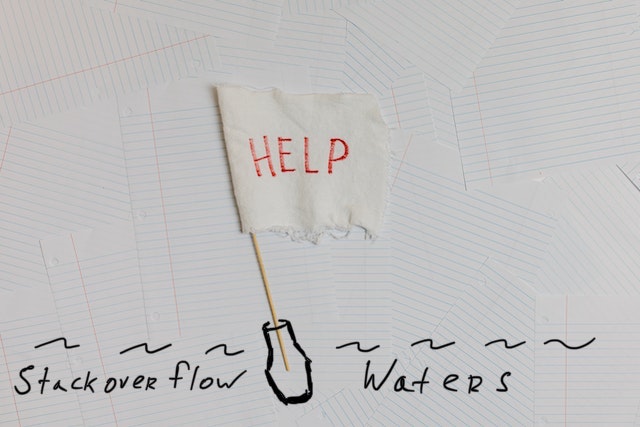 HELP
Stackoverflow Waters